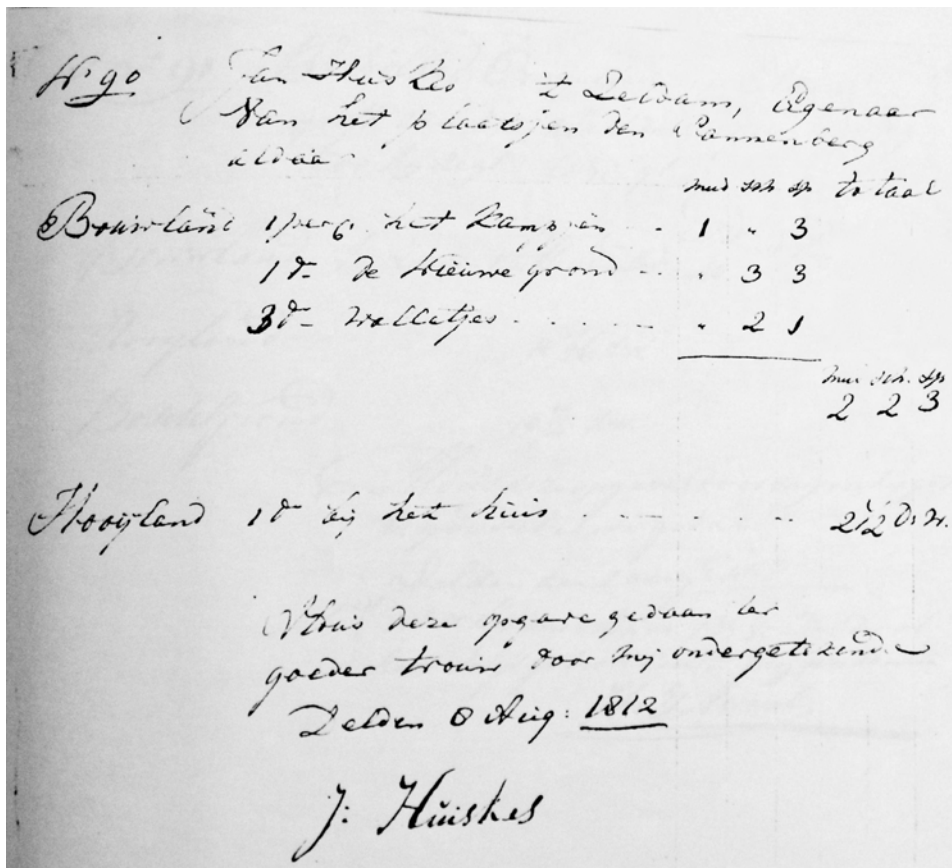 N. 90 Jan Huiskes 't Zeldam, Eigenaar
van het plaatsjen den Dannenberg
aldaar
mud sch. sp totaal
Bouwland 1 perc. het Kampjen - - 1 " 3
1 do de Nieuwe grond - - " 3 3
3 do Walletjes - - - - - " 2 1
mud sch. sp
2 2 3
Hooyland 1 do bij het huis - - - - - 2 1/2 D. W.
Aldus deze opgave gedaan ter
goeder trouw door mij ondergetekend.
Delden 8 Aug: 1812
J: Huiskes